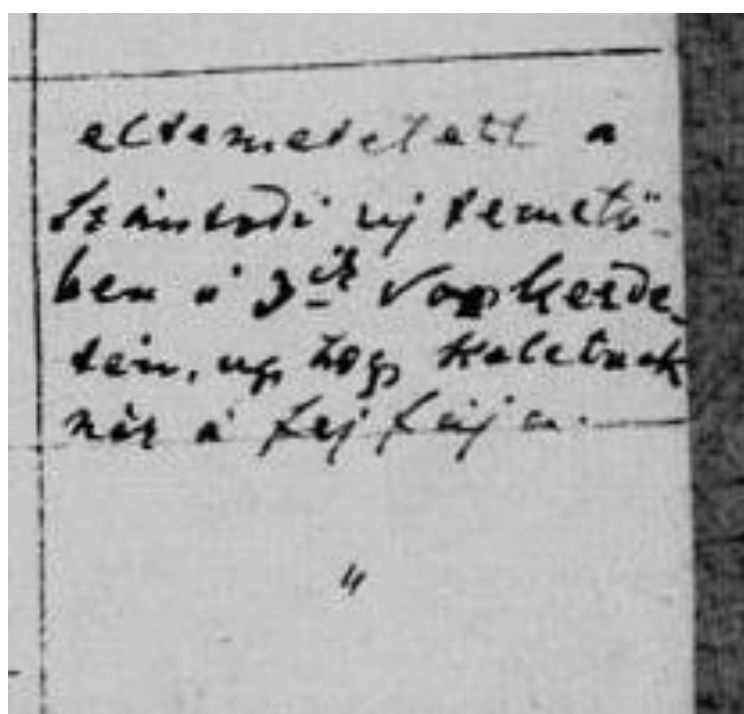 eltemettetett a
szántódi uj temető-
ben a 3ik sor kezde-
tén, ugy hogy keletnek
néz a fejfája.
"